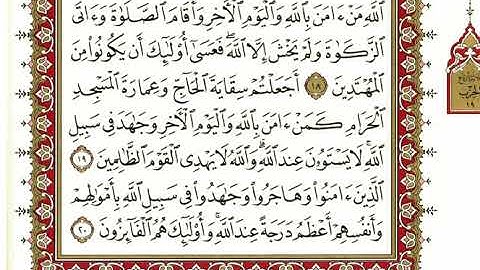 اللَّهِ مَنْ ءَامَنَ بِاللَّهِ وَالْيَوْمِ الْآخِرِ وَأَقَامَ الصَّلَوٰةَ وَءَاتَى
الزَّكَوٰةَ وَلَمْ يَخْشَ إِلَّا اللَّهَ ۖ فَعَسَىٰٓ أُو۟لَٰٓئِكَ أَن يَكُونُوا۟ مِنَ
الْمُهْتَدِينَ ١٨ أَجَعَلْتُمْ سِقَايَةَ الْحَآجِّ وَعِمَارَةَ الْمَسْجِدِ
الْحَرَامِ كَمَنْ ءَامَنَ بِاللَّهِ وَالْيَوْمِ الْآخِرِ وَجَٰهَدَ فِى سَبِيلِ
اللَّهِ ۚ لَا يَسْتَوُۥنَ عِندَ اللَّهِ ۗ وَاللَّهُ لَا يَهْدِى الْقَوْمَ الظَّٰلِمِينَ ١٩
الَّذِينَ ءَامَنُوا۟ وَهَاجَرُوا۟ وَجَٰهَدُوا۟ فِى سَبِيلِ اللَّهِ بِأَمْوَٰلِهِمْ
وَأَنفُسِهِمْ أَعْظَمُ دَرَجَةً عِندَ اللَّهِ ۚ وَأُو۟لَٰٓئِكَ هُمُ الْفَآئِزُونَ ٢٠
الحزب
١٩